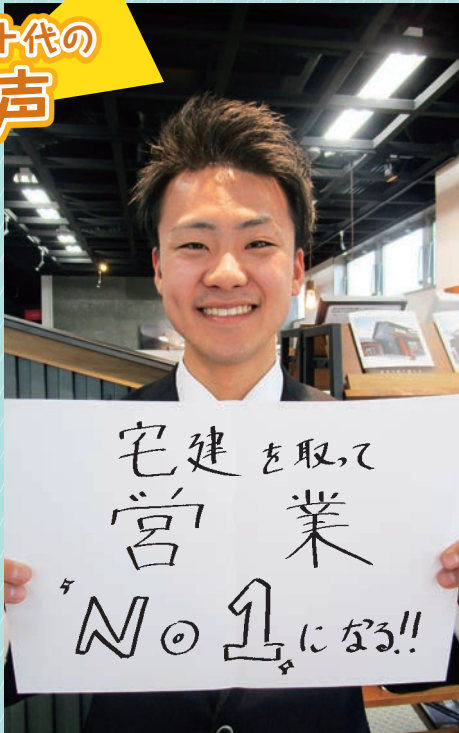 十代の
声
宅建を取って
営業
No1になる!!